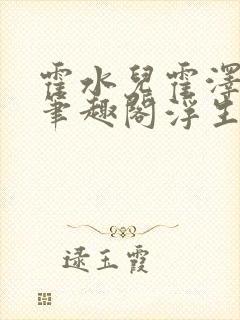 霍水兒霍澤
筆趣閣浮生
逯玉霞